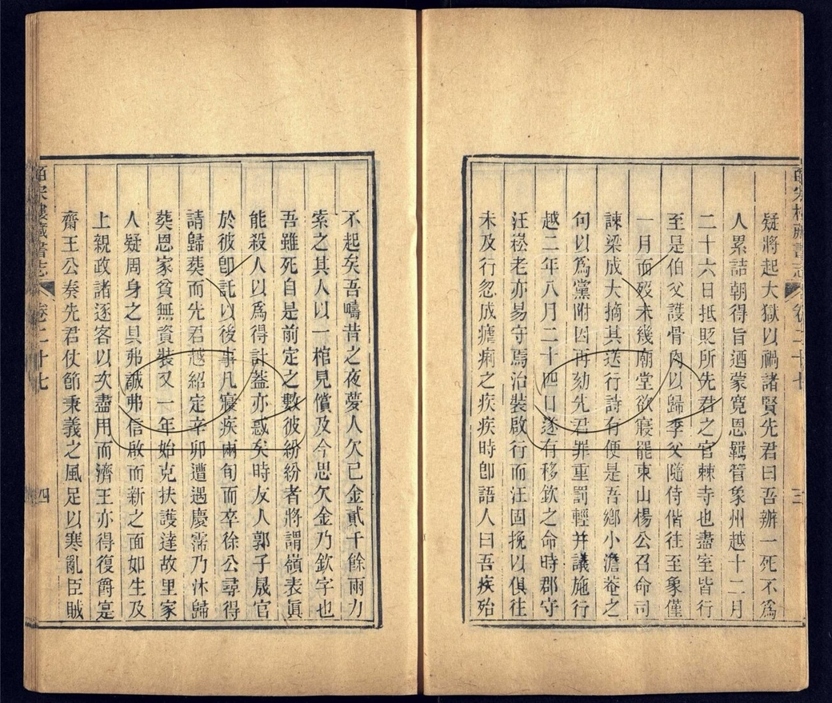 疑將起大獄以禍諸賢先君曰吾辦一死不爲
人累詰朝得旨迺蒙寬恩羈管象州越十二月
二十六日抵貶所先君之官棘寺也盡室皆行
至是伯父護骨肉以歸季父隨侍偕往至象僅
一月而歿未幾廟堂欲寢罷東山楊公召命司
諫梁成大摘其送行詩有便是吾鄉小澹菴之
句以爲黨附因再劾先君罪重罰輕并議施行
越二年八月二十四日遂有移欽之命時郡守
汪崧老亦易守焉治裝啟行而汪固挽以俱往
未及行忽成瘧痢之疾疾時卽語人曰吾疾殆
皕宋樓藏書志
卷二十七
三
不起矣吾疇昔之夜夢人欠已金貳千餘兩力
索之其人以一棺見償及今思欠金乃欽字也
吾雖死自是前定之數彼紛紛者將謂嶺表眞
能殺人以爲得計葢亦惑矣時友人郭子晟官
於彼卽託以後事凡寢疾兩旬而卒徐公尋得
請歸葬而先君越紹定辛卯遭遇慶霈乃沐歸
葬恩家貧無資裝又一年始克扶護達故里家
人疑周身之具弗誠弗信啟而新之面如生及
上親政諸逐客以次盡用而濟王亦得復爵寔
齊王公奏先君仗節秉義之風足以寒亂臣賊
皕宋樓藏書志
卷二十七
四